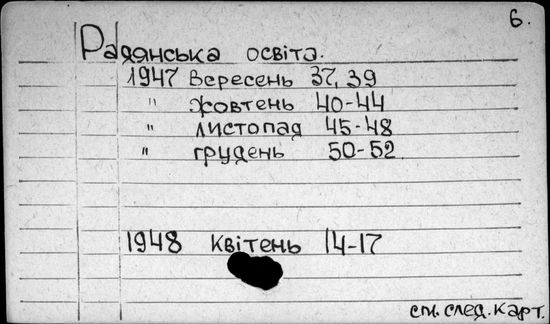 6.
Радянська освіта.
1947 Вересень 37, 39
" жовтень 40-44
" листопад 45-48
" грудень 50-52
1948 Квітень 14-17
см. след. карт.